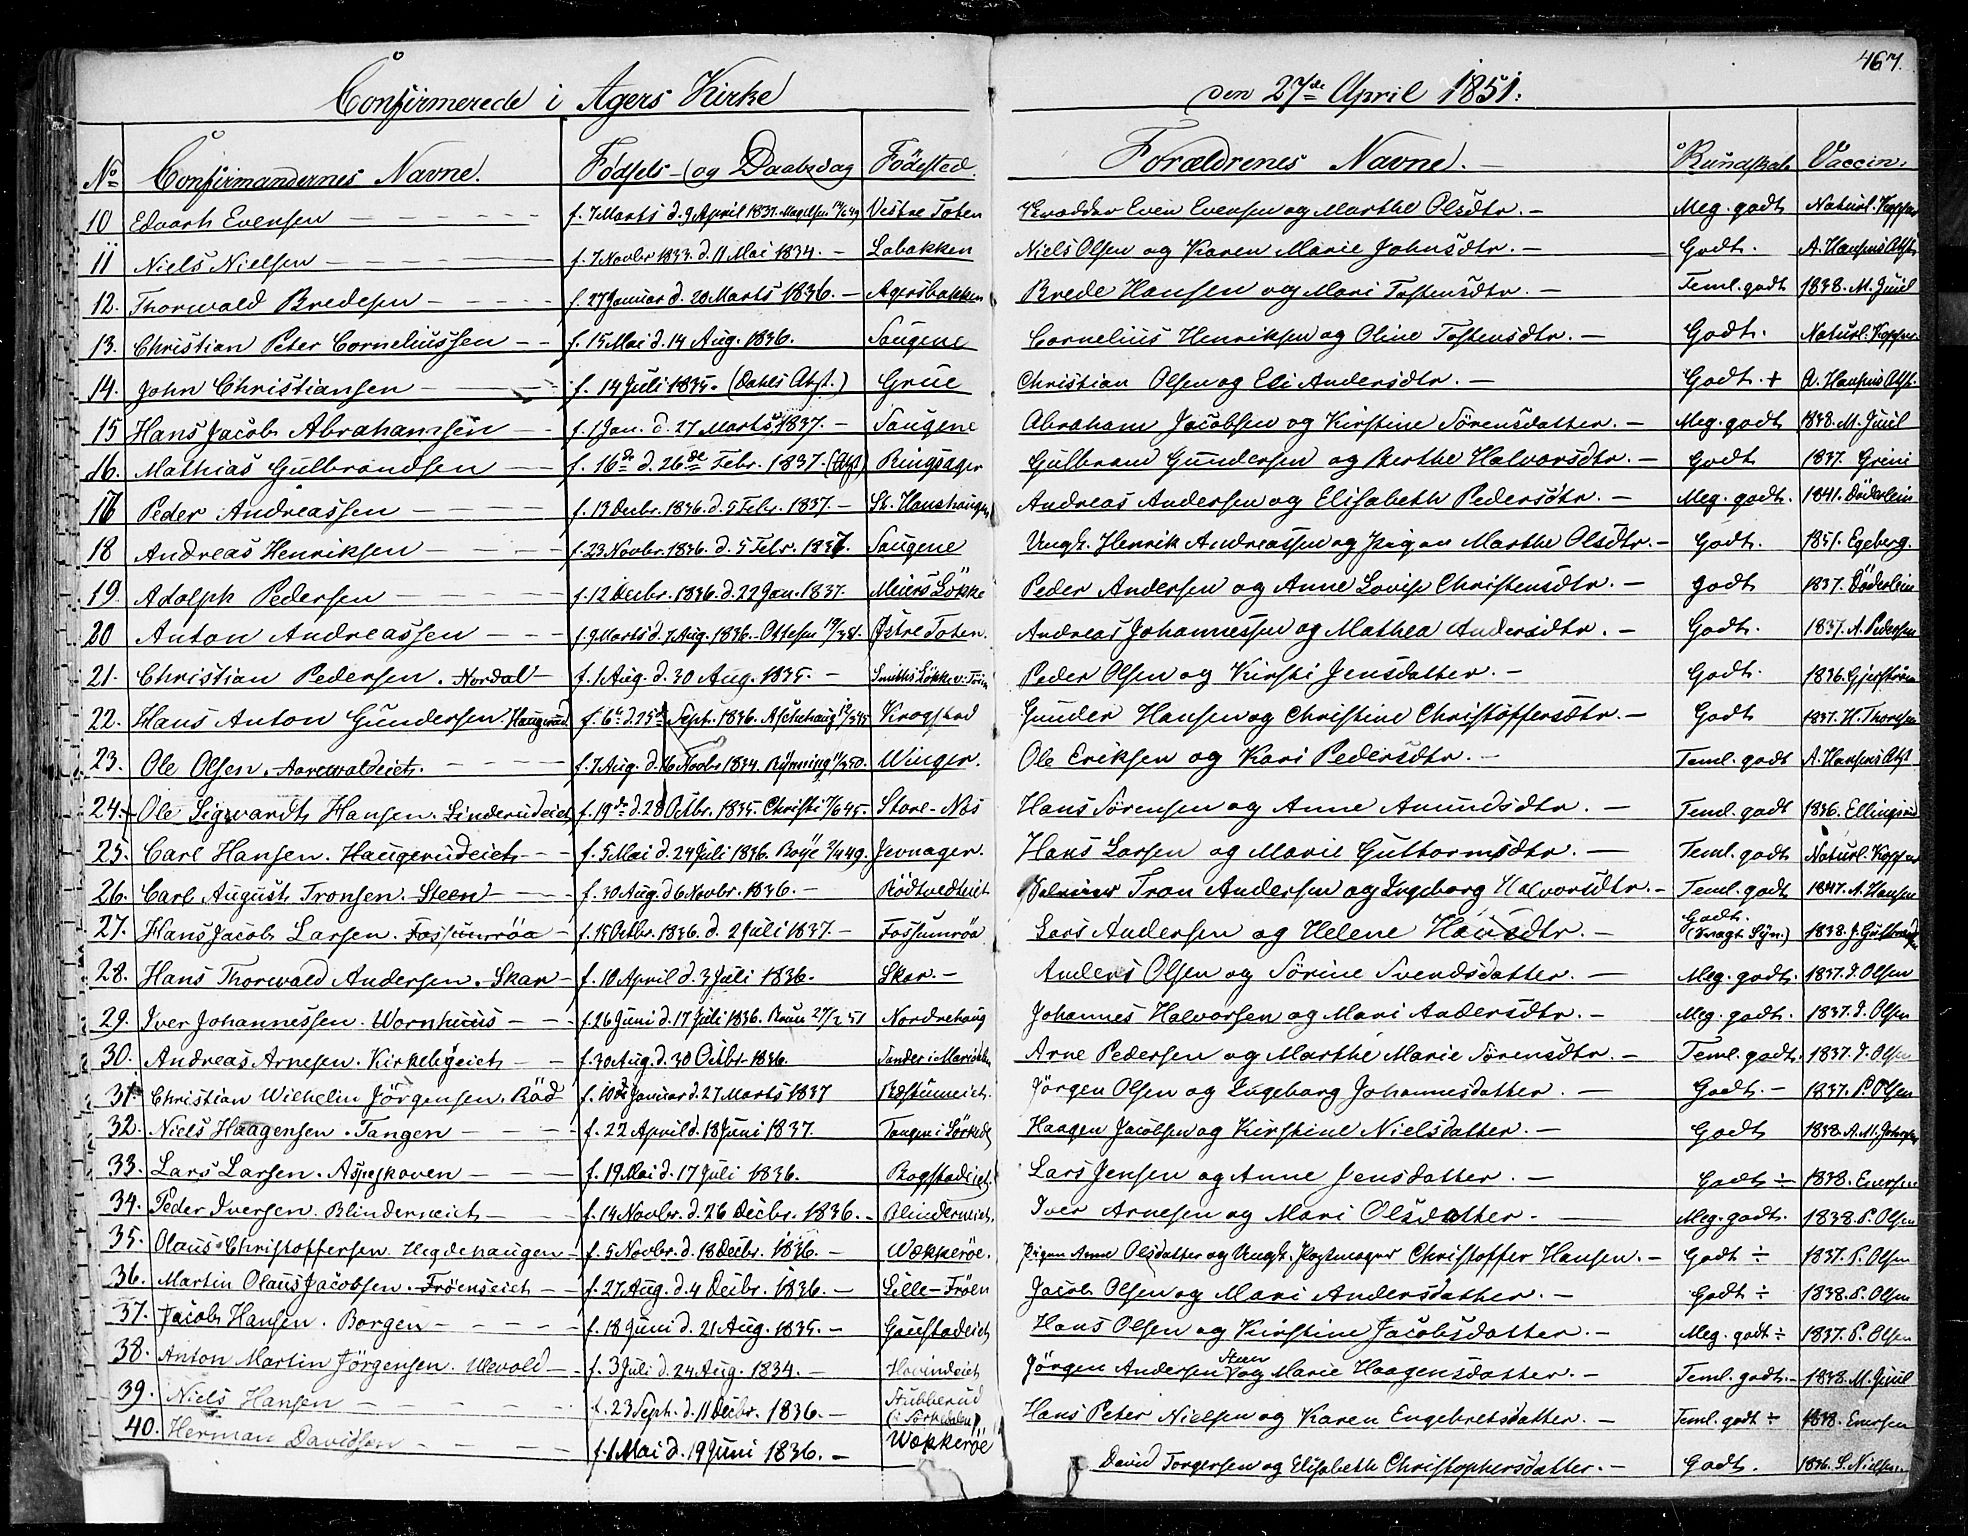 467.
Confirmerede i Agers Kirke den 27de April 1851.
No Confirmandernes Navne. Fødsels- og Daabsdag Födested. Forældrenes Navne. Kundskab Vaccin.
10 Edvart Evensen f. 7 Marts d. 9 April 1837. Vestre Toten Even Evensen og Marthe Olsdtr. Meg. godt Naturl. Kopper
11 Niels Nielsen f. 7 Novbr 1833. d. 11 Mai 1834. Labakken Niels Olsen og Karen Marie Johnsdtr. Godt. A. Hansens Attst
12. Thorwald Bredesen f. 27 Januar d. 20 Marts 1836. Agersbakken Brede Hansen og Mari Tostensdtr. Teml. godt 1838. M. Juul
13. Christian Peter Corneliussen f. 15 Mai d. 14 Aug. 1836. Saugene Cornelius Henriksen og Oline Tostensdtr. Godt. Naturl. Kopper
14. John Christiansen f. 14 Juli 1835. (Dahls Atst.) Grue Christian Olsen og Eli Andersdtr. Godt. + A. Hansens Atst.
15 Hans Jacob Abrahamsen f. 1 Jan. d. 27 Marts 1837. Saugene Abraham Jacobsen og Kirstine Sörensdatter. Meg. godt 1838. M. Juul
16. Mathias Gulbrandsen f. 16de d. 26de Febr. 1837. (Atst) Ringsager Gulbrand Gundersen og Berthe Halvorsdtr. Godt 1837. Greni
16 Peder Andreassen f. 13 Decbr. 1836. d. 5 Febr. 1837. St. Hanshaugen Andreas Andersen og Elisabeth Pedersdtr. Meg. godt. 1841. Döderlein
18 Andreas Henriksen f. 23 Novbr. 1836. d. 5 Febr. 1837. Saugene Ungk. Henrik Andreassen og Pigen Marthe Olsdtr. Godt. 1851. Egeberg.
19. Adolph Pedersen f. 12 Decbr. 1836. d. 22 Jan. 1837. Meiers Lökke Peder Andersen og Anne Lovise Christensdtr. Godt 1837. Döderlein
20 Anton Andreassen f. 9 Marts d. 7 Aug. 1836. Østre Toten. Andreas Johannessen og Mathea Andersdtr. Godt. 1837. A. Pedersen
21. Christian Pedersen. Nordal f. 1 Aug. d. 30 Aug. 1835. Smiths Lökke Peder Olsen og Kirsti Jensdatter. Godt 1836. Gjerström
22. Hans Anton Gundersen. Haugerud f. 6te d. 25de Sept. 1836. Krogstad Gunder Hansen og Christine Christoffersdtr. Godt 1837. H. Thoresen
23. Ole Olsen. Aarewaldeiet. f. 7 Aug. d. 16 Novbr 1834. Winger. Ole Eriksen og Kari Pedersdtr. Teml. godt A. Hansens Atst
24. Ole Sigwardt Hansen. Linderudeiet f. 19de d. 28 Octbr. 1835. Christi Store-Næs Hans Sörensen og Anne Amundsdtr. Teml. godt 1836. Ellingsrud
25. Carl Hansen. Haugerudeiet f. 5 Mai d. 24 Juli 1836. Boye Jevnager. Hans Larsen og Marie Guttormsdtr. Teml. godt Naturl. Kopper
26. Carl August Tronsen. Steen f. 30 Aug. d. 6 Novbr. 1836. Rödtvedteiet Tron Andersen og Ingeborg Halvorsdtr. Teml. godt 1847. A. Hansen
27. Hans Jacob Larsen. Fossumröa f. 15 Octbr. 1836. d. 2 Juli 1837. Fossumröa Lars Andersen og Helene Hansdtr. Godt. (Svagt Syn.) 1838. J. Gulbrand
28. Hans Thorwald Andersen. Skar f. 10 April d. 3 Juli 1836. Skar. Anders Olsen og Sörine Svendsdatter. Meg. godt. 1837. I. Olsen
29. Iver Johannessen. Wornhuus f. 26 Juni d. 17 Juli 1836. Nordrehaug Johannes Halvorsen og Mari Andersdtr. Meg. godt. 1837. I. Olsen
30. Andreas Arnesen. Kirkebyeiet f. 30 Aug. d. 30 Octbr. 1836. Arne Pedersen og Marthe Marie Sörensdtr. Teml. godt. 1837. I. Olsen
31. Christian Wilhelm Jörgensen. Röd f. 10de Januar d. 27 Marts 1837 Jörgen Olsen og Ingeborg Johannesdatter. Godt. 1837. P. Olsen
32. Niels Haagensen. Tangen f. 22 April d. 18 Juni 1837. Tangen i Sörked. Haagen Jacobsen og Kirstine Nielsdatter. Godt 1838. A. M. Johnsen
33. Lars Larsen. Aspeskoven f. 19 Mai d. 17 Juli 1836. Bogstadeiet Lars Jensen og Anne Jensdatter. Godt ÷ 1838. Evensen
34. Peder Iversen. Blinderneiet f. 14 Novbr. d. 26 Decbr. 1836. Blinderneiet. Iver Arnesen og Mari Olsdatter. Meg. godt. 1838. P. Olsen
35. Olaus Christoffersen. Hegdehaugen f. 5 Novbr. d. 18 Decbr. 1836. Wækkeröe. Pigen Anne Olsdatter og Ungk. Christoffer Hansen. Godt ÷ 1837. P. Olsen
36. Martin Olaus Jacobsen. Fröenseiet f. 27 Aug. d. 4 Decbr. 1836. Lille-Fröen Jacob Olsen og Mari Andersdatter. Godt ÷ 1838. P. Olsen
37. Jacob Hansen. Borgen f. 18 Juni d. 21 Aug. 1835. Goustadeiet Hans Olsen og Kirstine Jacobsdatter. Meg. godt ÷ 1837. P. Olsen
38. Anton Martin Jörgensen. Ulevold f. 3 Juli d. 24 Aug. 1834. Hovindeiet Jörgen Andersen Steen og Marie Haagensdatter. Teml. godt. 1838. M. Juul
39. Niels Hansen f. 23 Sept. d. 11 Decbr. 1836. Stubberud (i Sörkedalen) Hans Peter Nielsen og Karen Engebretsdatter. Teml. godt ÷ 1838. Evensen
40. Herman Davidsen f. 1 Mai d. 19 Juni 1836. Wækkeröe David Torgersen og Elisabeth Christophersdatter. Godt. 1836. S. Nielsen